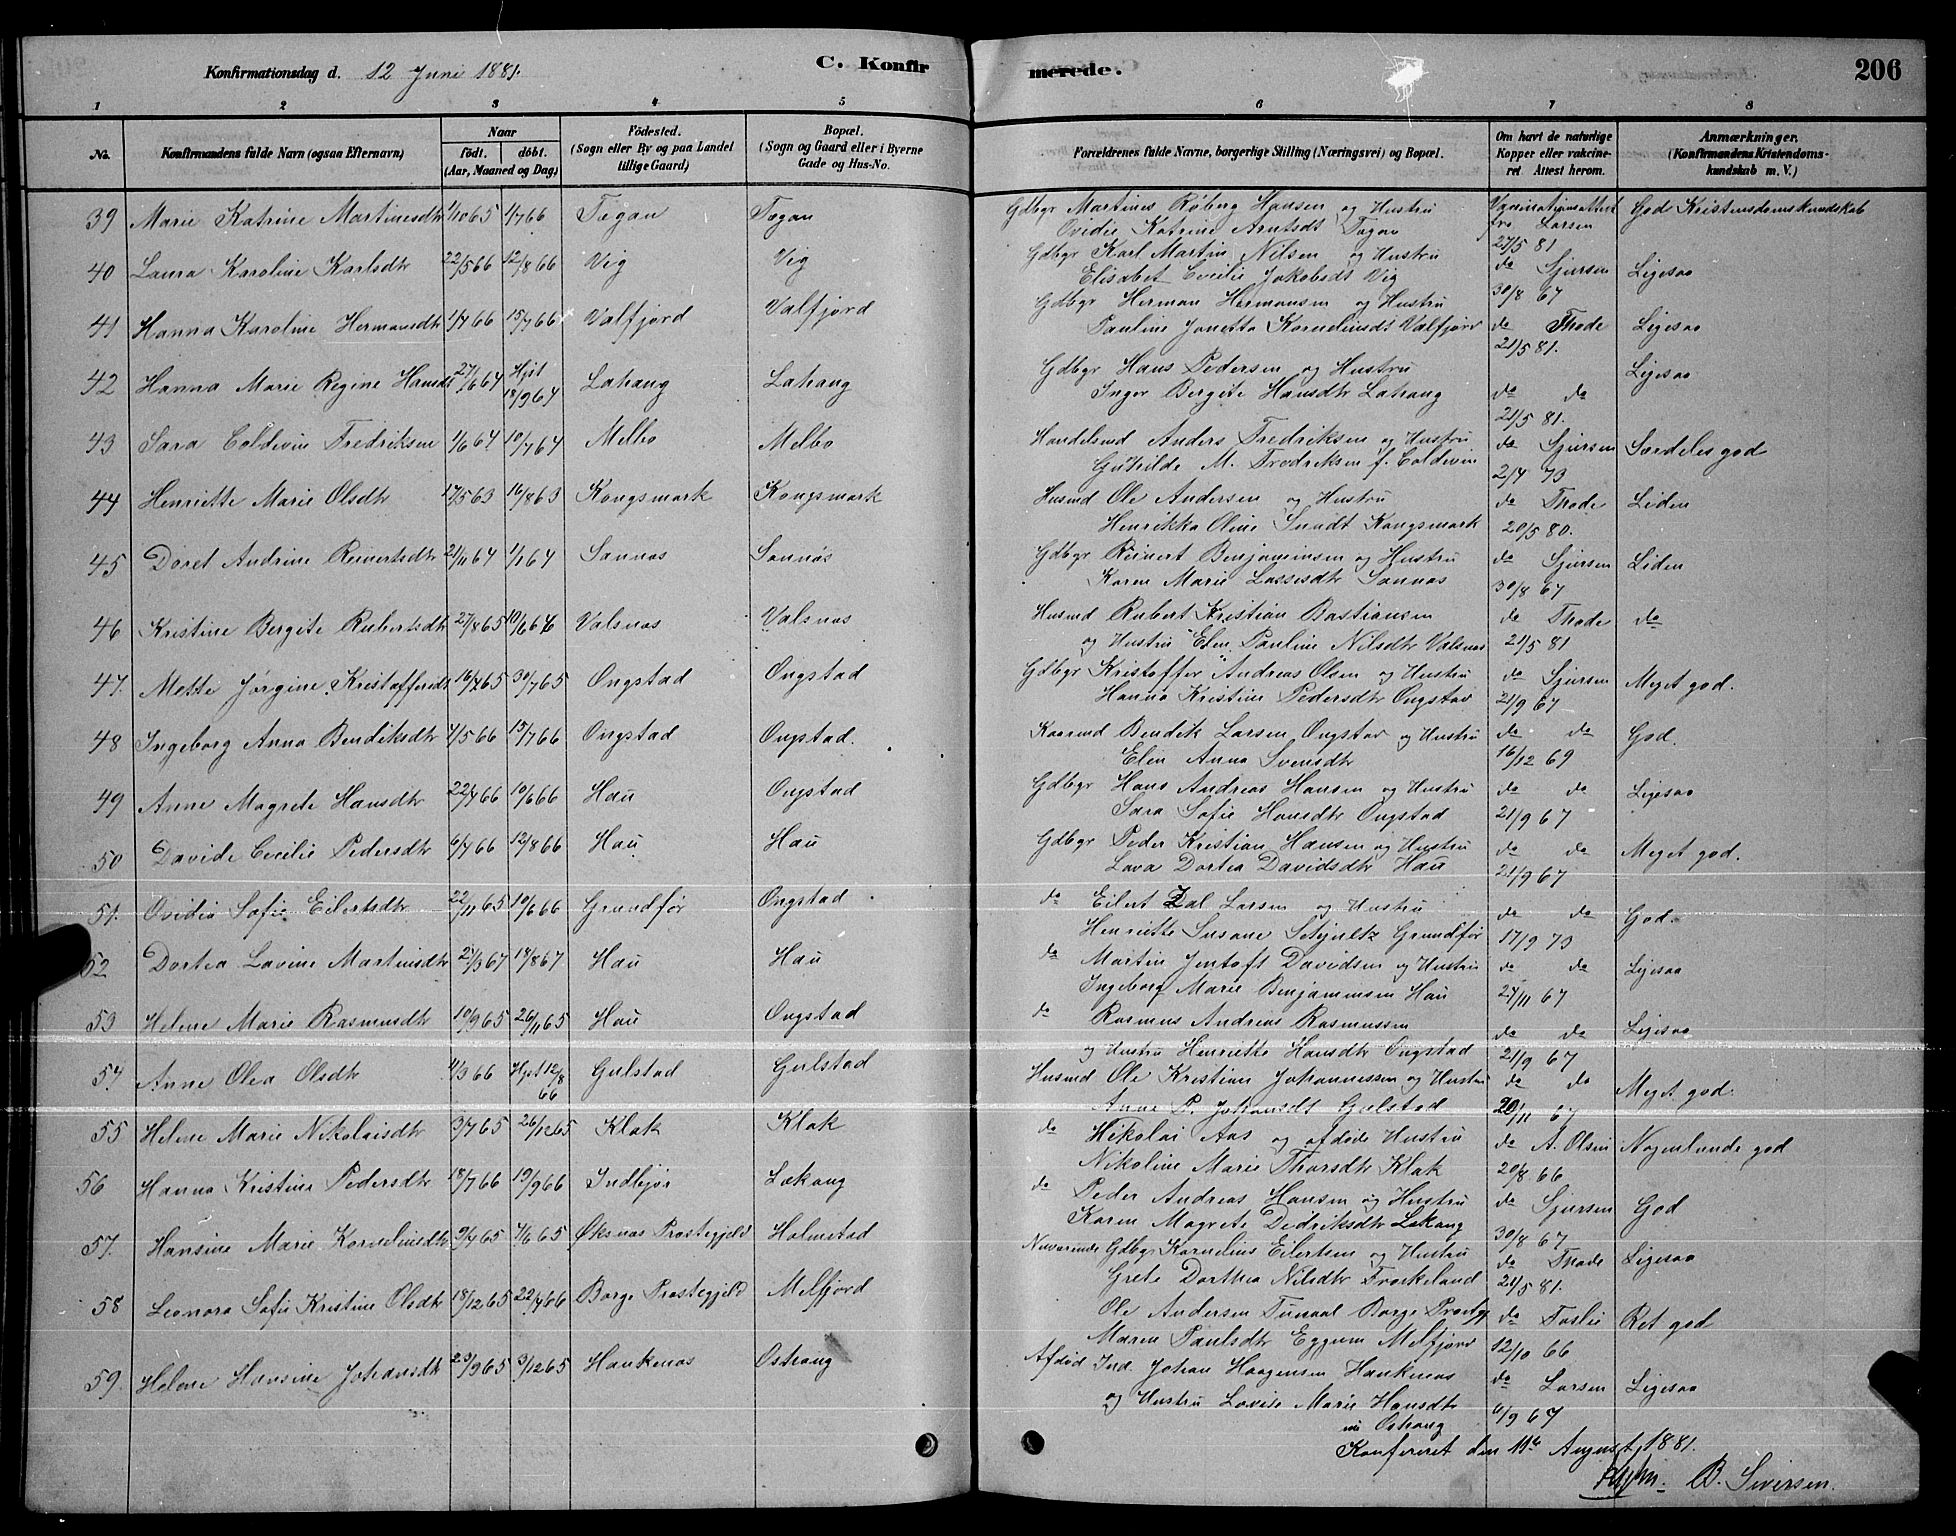 Konfirmationsdag d. 12 Juni 1881.
C. Konfirmerede.
206
1 2 3 4 5 6 7 8
No.
Konfirmandens fulde Navn (ogsaa Efternavn)
Naar
födt. döbt.
(Aar, Maaned og Dag)
Födested.
(Sogn eller By og paa Landet
tillige Gaard)
Bopæl.
(Sogn og Gaard eller i Byerne
Gade og Hus-No.
Forældrenes fulde Navne, borgerlige Stilling (Næringsvei) og Bopæl.
Om havt de naturlige
Kopper eller vakcine-
ret. Attest herom.
Anmærkninger.
(Konfirmandens Kristendoms-
kundskab m. V.)
39 Marie Katrine Martinusdtr 1/10 65 1/7 66 Tøgan Tøgan Gdbgr Martines Röberg Hansen og Hustru Vaccinationsattest God Kristendomskundskab
Ovidie Katrine Arntsdt Tøgan fra Larsen
27/5 81
40 Laura Karoline Karlsdtr 22/5 66 12/8 66 Vig Vig Gdbgr Karl Martin Nilsen og Hustru do Sjursen Ligesaa
Elisabet Cecilie Jakobsdt Vig 30/8 67
41 Hanna Karoline Hermansdtr 1/4 66 15/7 66 Valfjord Valfjord Gdbgr Herman Hermansen og Hustru do Thode Ligesaa
Pauline Jonetta Kornelinsdt Valfjord 21/5 81.
42 Hanna Marie Regine Hansdt 27/6 64 Hjdt 18/9 64 Lahaug Lahaug Gdbgr Hans Pedersen og Hustru do do Ligesaa
Inger Bergite Hansdtr Lahaug 21/5 81.
43 Sara Coldevin Fredriksen 1/6 64 10/7 64 Melbo Melbo Handelsmd Anders Fredriksen og Hustru do Sjursen Særdeles god
Gunhilde M. Fredriksen f. Coldevin 2/4 73
44 Henriette Marie Olsdtr 17/5 63 16/8 63 Kongsmark Kongsmark Husmd Ole Andersen og Hustru do Thode Liden
Henrikka Oline Sundt Kongsmark 20/5 80.
45 Doret Andrine Reinertsdtr 21/11 64 1/1 64 Sannas Sannøs Gdbgr Reinert Benjaminsen og Hustru do Sjursen Liden
Karen Marie Lassesdtr Sannas 30/8 67
46 Kristine Bergite Rubertsdtr 27/8 65 10/6 66 Valsnas Valsnas Husmd Rubert Kristian Bastiansen do Thode do
og Hustru Elen Pauline Nilsdtr Valsnas 21/5 81
47. Mette Jørgine Kristoffersdt 16/2 65 30/7 65 Ongstad Ongstad Gdbgr Kristoffer Andreas Olsen og Hustru do Sjursen Meget god.
Hanna Kristine Pedersdtr Ongstad 21/9 67
48 Ingeborg Anna Bendiksdtr 4/5 66 15/7 66 Ongstad Ongstad. Kaarmd Bendik Larsen Ongstad og Hustru do do God.
Elen Anna Svensdtr 16/12 69
49 Anne Magrete Hansdtr 22/4 66 10/6 66 Hau Ongstad Gdbgr Hans Andreas Hansen og Hustru do do Ligesaa
Sara Sofie Hansdtr Ongstad 21/9 67
50 Davide Cecilie Pedersdtr 6/4 66 12/8 66 Hau Hau Gdbgr Peder Kristian Hansen og Hustru do do Meget god.
Lava Dortea Davidsdtr Hau 21/9 67
51. Ovidia Sofie Eilertsdtr 22/11 65 10/6 66 Grundfør Ongstad do Eilert Zal Larsen og Hustru do do God
Henriette Susane Schjultz Grundfør 17/9 73
52 Dortea Lavine Martinsdtr 21/3 67 18/8 67 Hau Hau do Martin Jentoft Davidsen og Hustru do do Ligesaa
Ingeborg Marie Benjaminsen Hau 24/11 67
53 Helene Marie Rasmusdtr 10/9 65 26/11 65 Hau Ongstad do Rasmus Andreas Rasmussen do do Ligesaa
og Hustru Henriette Hansdtr Ongstad 21/9 67
54 Anne Olea Olsdtr 4/3 66 Hjdt 12/8 66 Gulstad Gulstad Husmd Ole Kristian Johannessen og Hustru do do Meget god.
Anne P. Johansdt Gulstad 20/11 67
55 Helene Marie Nikolaisdtr 3/7 65 26/12 65 Klak Klak do Nikolai Aas og afdøde Hustru do A. Olsen Nogenlunde god
Nikoline Marie Thorsdtr Klak 20/8 66
56 Hanna Kristine Pedersdtr 18/7 66 19/9 66 Indbjør Lekang do Peder Andreas Hansen og Hustru do Sjursen God
Karen Magrete Didriksdtr Lekang 30/8 67
57. Hansine Marie Korneliusdtr 9/4 65 4/6 65 Øksnas Prastegjeld Holmstad Nuværende Gdbgr Kornelius Eilertsen og Hustru do Thode Ligesaa
Grete Dorthea Nilsdtr Frockeland 21/5 81.
58 Leonora Sofie Kristine Olsdtr 18/12 65 22/4 66 Borge Prastegjeld Melfjord Ole Andersen Tunaal Borge Prastgj do Foslie Ret god
Maren Paulsdtr Eggum Melfjord 12/10 66
59. Helene Hansine Johansdtr 23/9 65 3/12 65 Haukenas Oshaug Afdød Ind. Johan Haagensen Haukenas do Larsen Ligesaa
og Hustru Lovise Marie Hansdtr 11/9 67
nu Oshaug
Konfereret den 11te August 1881.
B. Sivertsen.